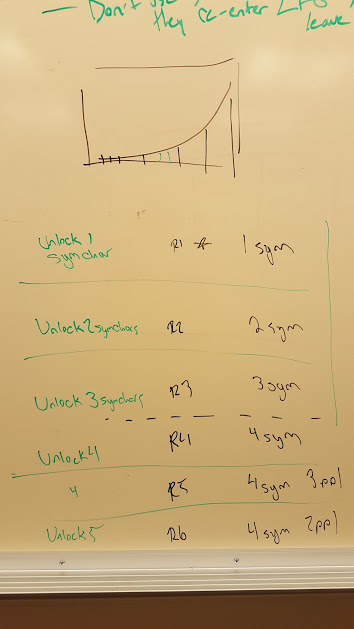 — Don't use
they re-enter LFG
leave
Unlock 1
synchar R1 ☆ 1 sym
Unlock 2 synchars R2 2 sym
Unlock 3 synchars R3 3 sym
Unlock 4 R4 4 sym
4 R5 4 sym 3ppl
Unlock 5 R6 4 sym 2ppl